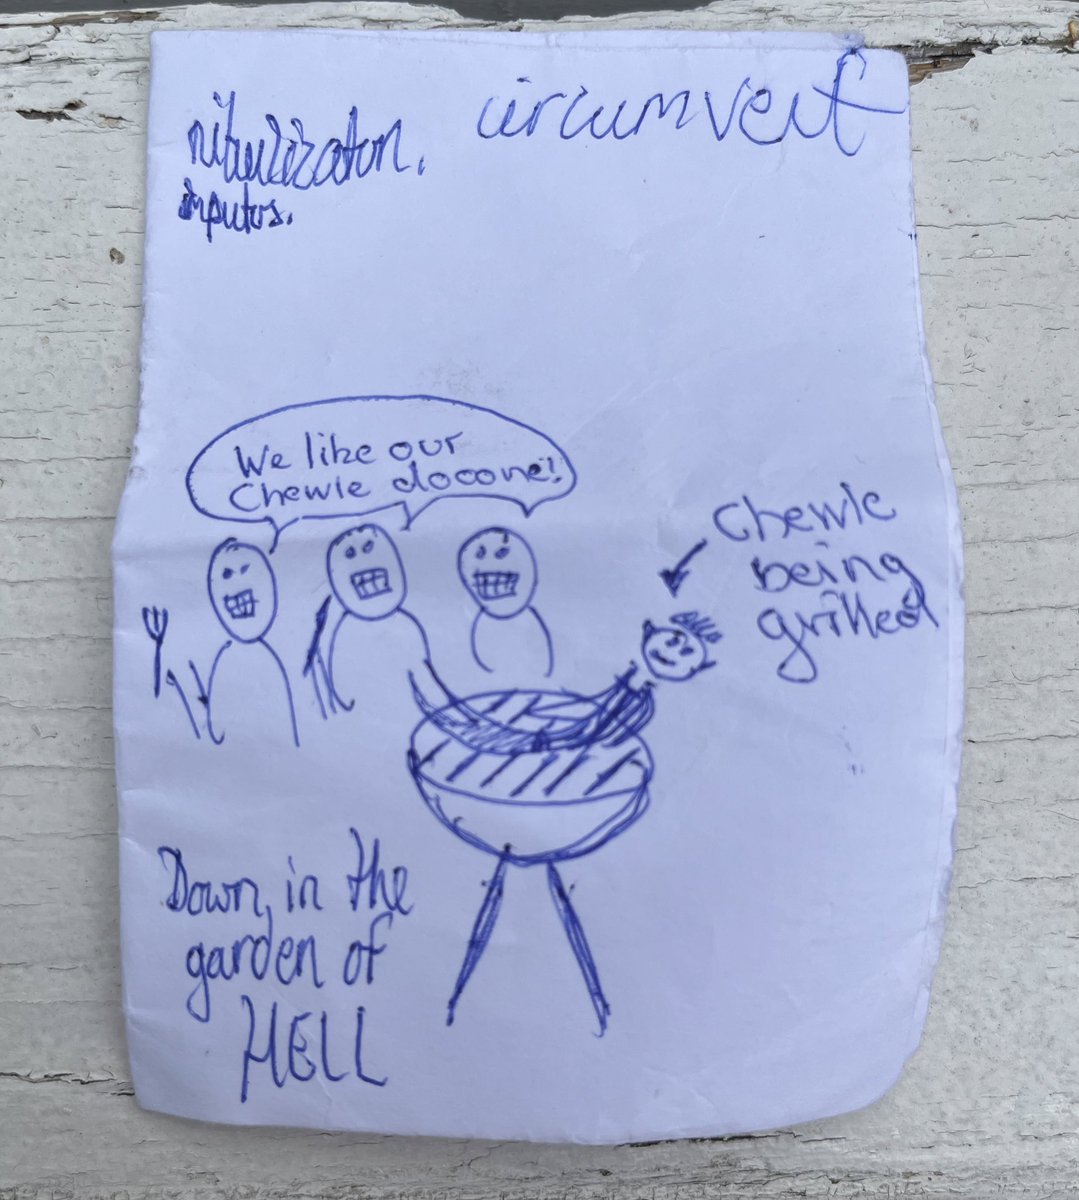 circumvent
We like our
Chewie dooone!
Chewie
being
grilled
Down in the
garden of
HELL